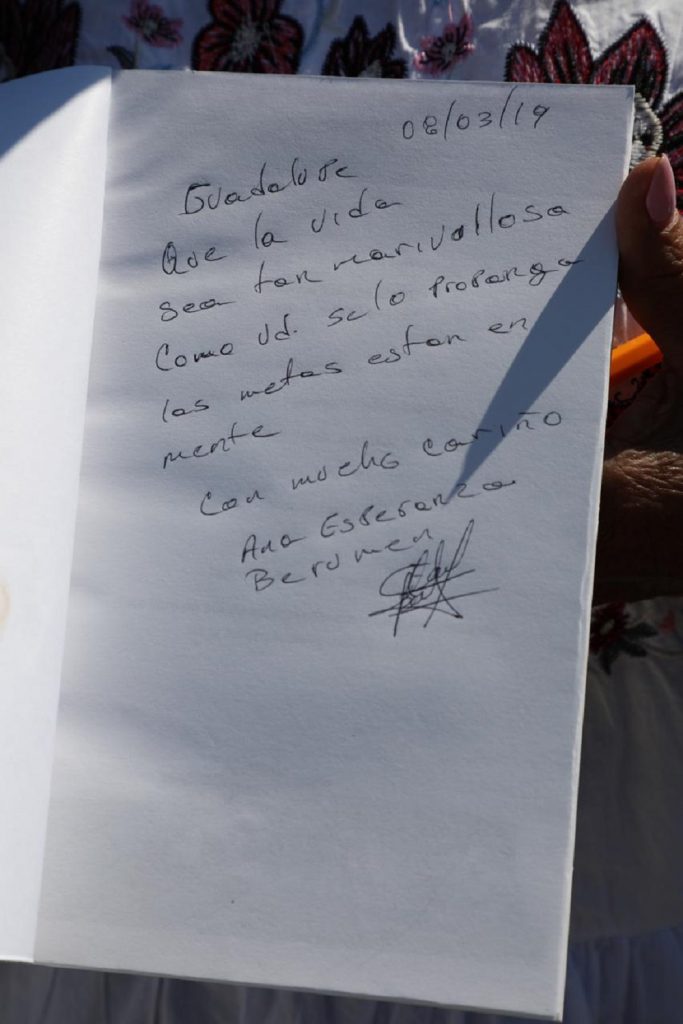 08/03/19
Guadalupe
Que la vida
sea tan marivollosa
Como Ud. se lo proponga
las metas estan en
mente
Con mucho cariño
Ana Esperanza
Berumen